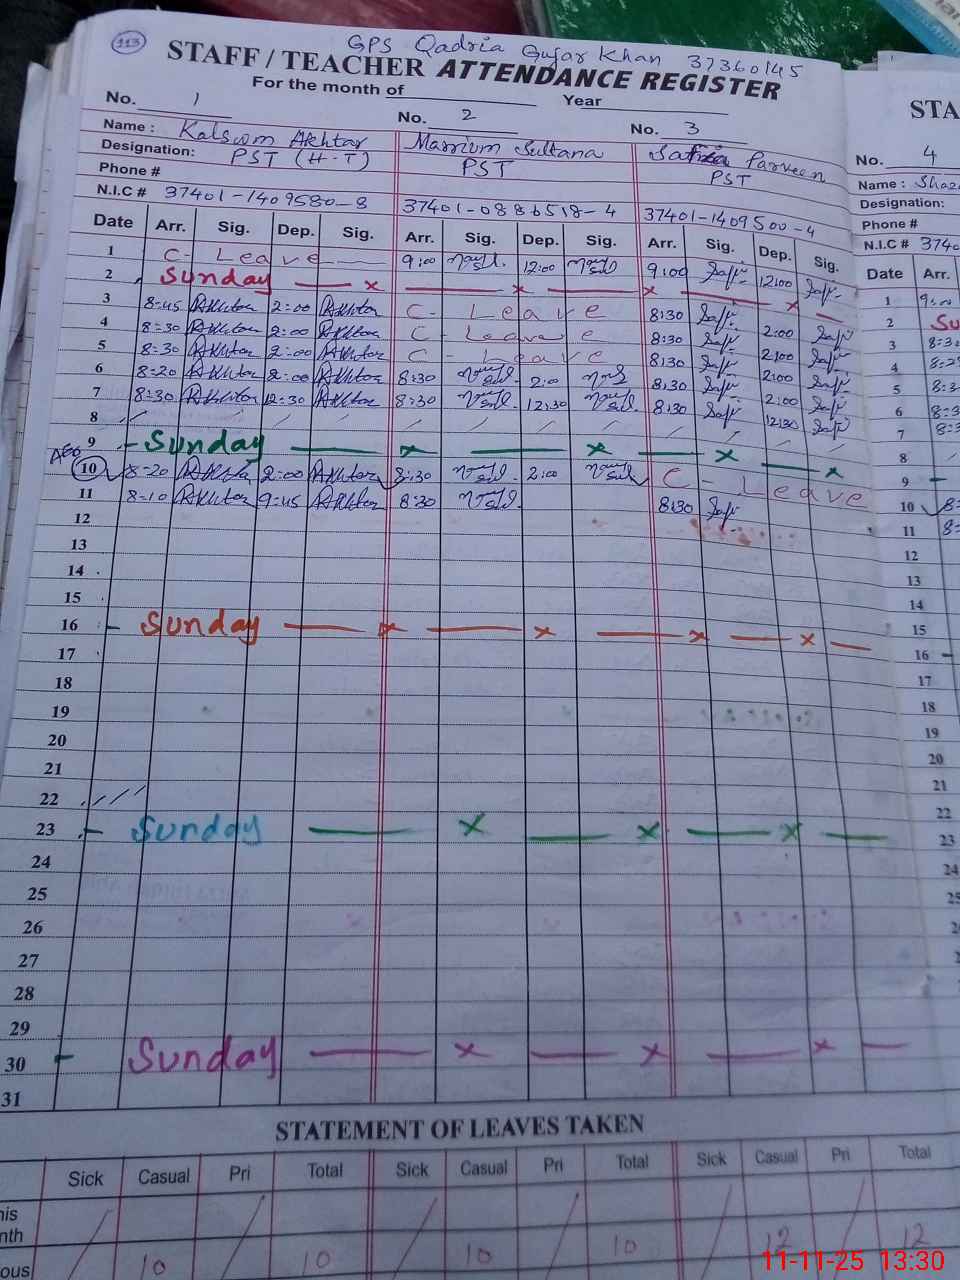 113
GPS Qadria Gujar Khan 37360145
STAFF / TEACHER ATTENDANCE REGISTER
For the month of Year
No. 1 No. 2 No. 3
Name : Kalsoom Akhtar Marrium Sultana Safia Parveen
Designation: PST (H.T) PST PST
Phone #
N.I.C # 37401-1409580-8 37401-0886518-4 37401-1409500-4
Date Arr. Sig. Dep. Sig. Arr. Sig. Dep. Sig. Arr. Sig. Dep. Sig.
1 C- Leave 9:00 12:00 9:00 12:00
2 Sunday x x x x
3 8-45 Akhtar 2:00 Akhtar C- Leave 8:30 2:00
4 8-30 Akhtar 2:00 Akhtar C- Leave 8:30 2:00
5 8-30 Akhtar 2:00 Akhtar C- Leave 8:30 2:00
6 8-20 Akhtar 2:00 Akhtar 8:30 2:00 8:30 2:00
7 8-30 Akhtar 12:30 Akhtar 8:30 12:30 8:30 12:30
8
9 Sunday x x x x
AEO
10 8-20 Akhtar 2:00 Akhtar 8:30 2:00 C- Leave
11 8-10 Akhtar 9:45 Akhtar 8:30 8:30
12
13
14
15
16 - Sunday x x x x
17
18
19
20
21
22
23 - Sunday x x x
24
25
26
27
28
29
30 - Sunday x x x
31
STATEMENT OF LEAVES TAKEN
Sick Casual Pri Total Sick Casual Pri Total Sick Casual Pri Total
his
nth
ous 10 10 10 10 12 12
STA
No. 4
Name : Shaz
Designation:
Phone #
N.I.C # 3740
Date Arr.
1 9:00
2 Su
3 8:30
4
5 8:3
6 8:3
7 8:3
8
9 -
10 8:
11 8:
12
13
14
15
16 -
17
18
19
20
21
22
23
24
25
11-11-25 13:30